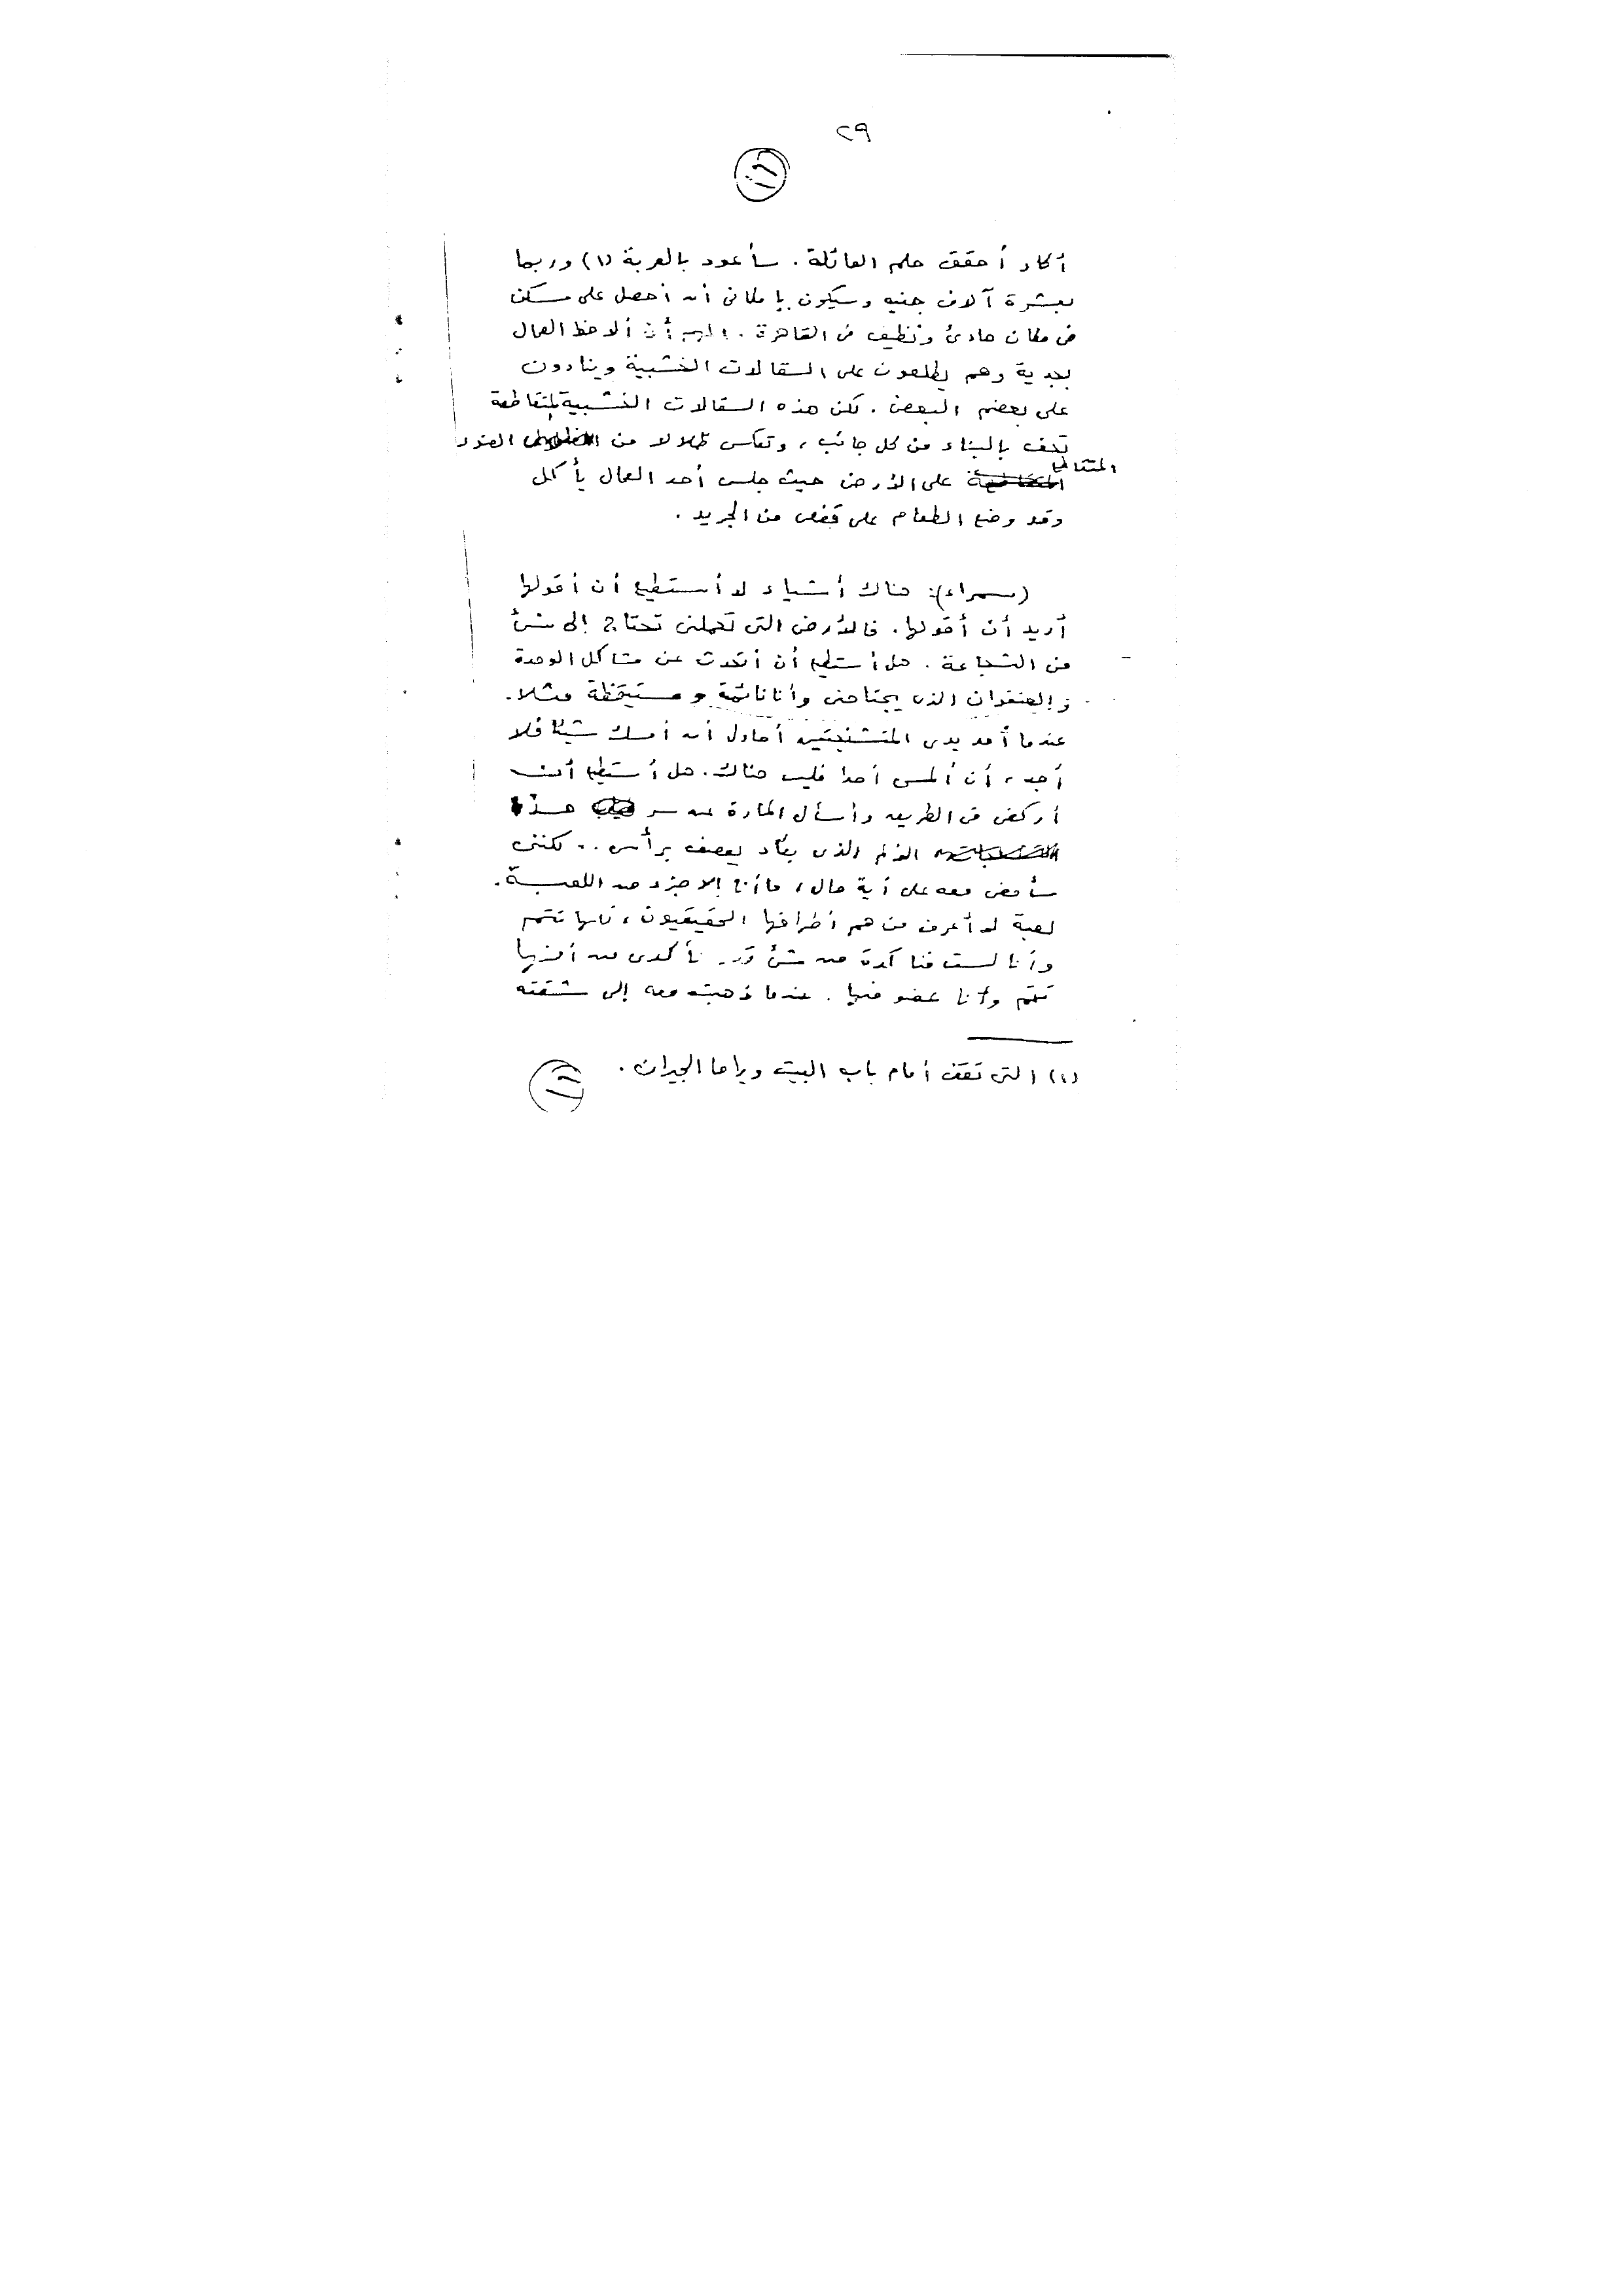 ٢٩
أكاد أحقق حلم العائلة . سأعود بالعربة (١) وربما
بعشرة آلاف جنيه وسيكون بإمكانى أن أحصل على مسكن
فى مكان هادئ ونظيف فى القاهرة . المهم أن ألاحظ العمال
بجدية وهم يطلعون على السقالات الخشبية وينادون
على بعضهم البعض . لكن هذه السقالات الخشبية المتقاطعة
تحف بالبناء من كل جانب ، وتعكس ظلالا من الضوء
المتقاطع
على الأرض حيث جلس أحد العمال يأكل
وقد وضع الطعام على قفص من الجريد .
(سمراء): هناك أشياء لا أستطيع أن أقولها
أريد أن أقولها . فالأرض التى تحملنى تحتاج إلى شئ
من الشجاعة . هل أستطيع أن أتحدث عن مشاكل الوحدة
والعنفوان الذى يجتاحنى وأنا نائمة ومستيقظة مثلا .
عندما أمد يدى المتشنجتين أحاول أن أمسك شيئا فلا
أجد ، أن ألمس أحدا فليس هناك . هل أستطيع أن
أركض فى الطريق وأسأل المارة عن سر هذا
الألم الذى يكاد يعصف برأسى .. لكننى
سأمضى معه على أية حال ، ما أنا إلا جزء من اللعبة .
لعبة لا أعرف من هم أطرافها الحقيقيون ، لكنها تتم
وأنا لست متأكدة من شئ قدر تأكدى من أنها
تتم وأنا عضو فيها . عندما ذهبت معه إلى شقته
(١) التى تقف أمام باب البيت ويراها الجيران .